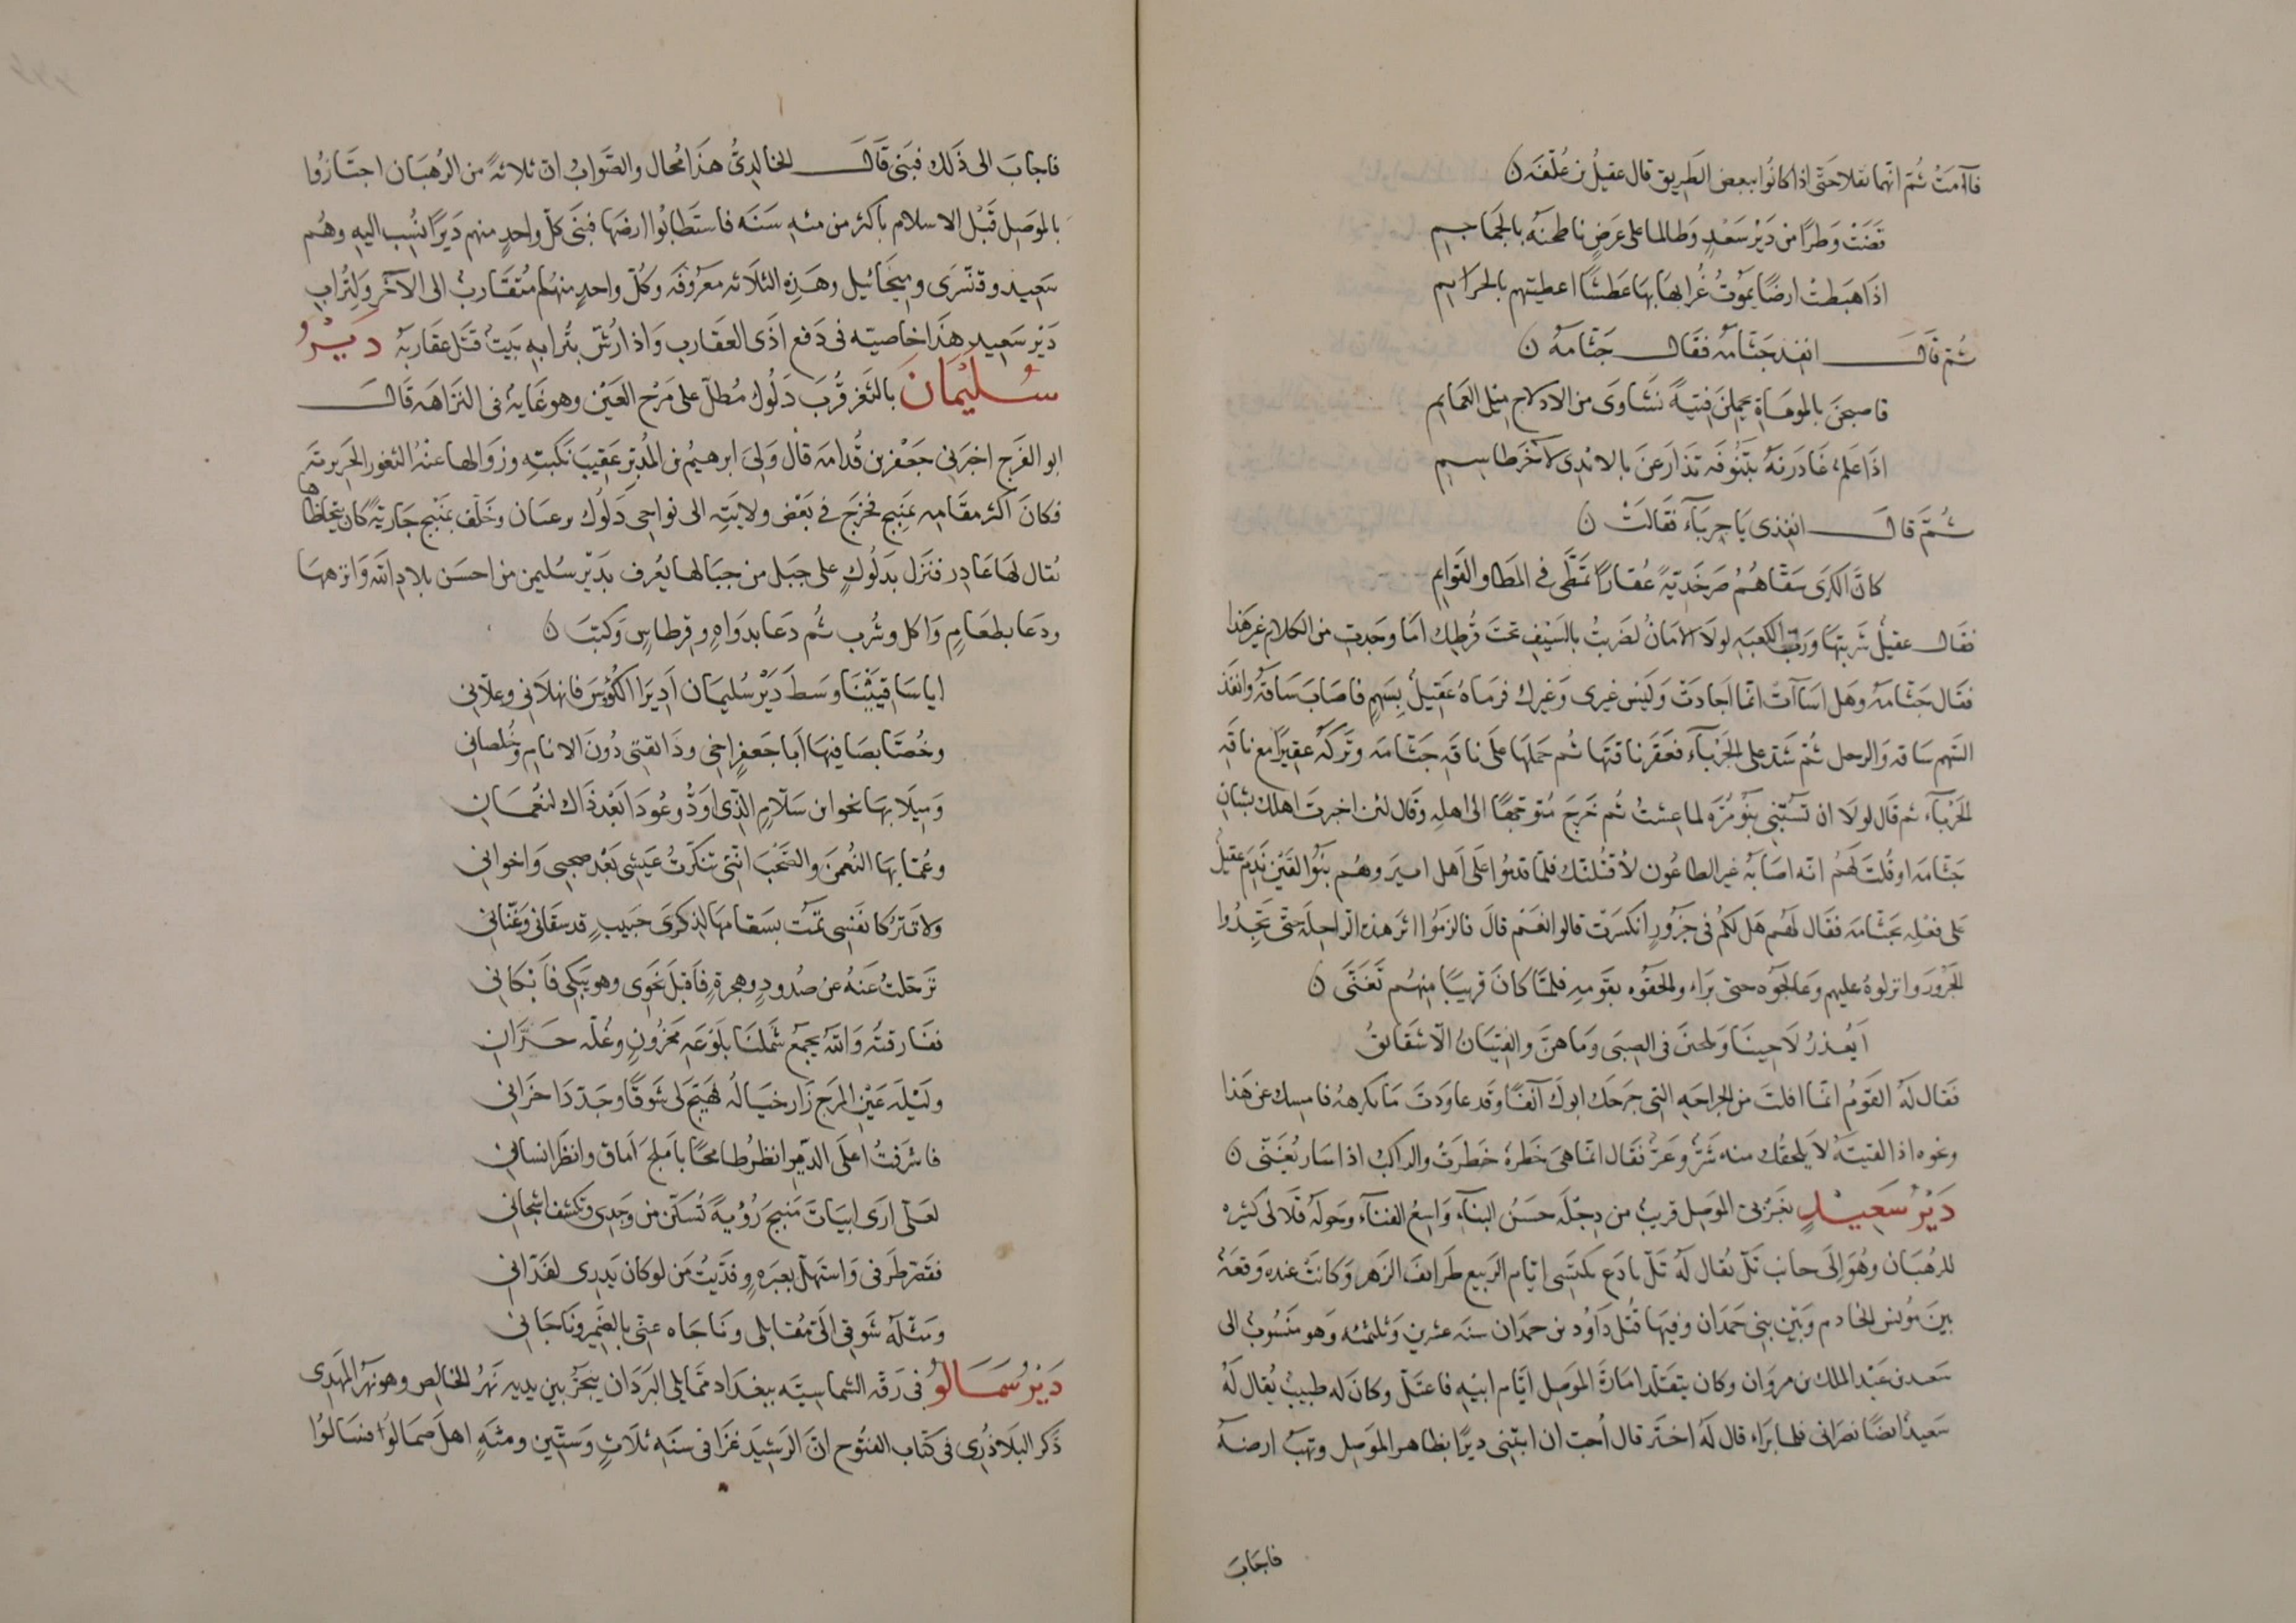 فآمت ثم انهما نقلا حتى اذا كانوا ببعض الطريق قال عقيل بن علّفه ن
قضت وطرًا من دَيْر سَعْدٍ وطالما على عرضٍ ناطحنه بالجماجم
اذا هبطت ارضًا يموتُ غُرابها بها عَطشًا اعطيتهم بالخزايم
ثم قال انفذ جَثّامه فقال جَثّامه ن
فاصبحن بالموماة يحملن فتيةً نشاوى من الادلاج ميل العمايم
اذا علمٌ غادرنهُ بتنوفه تذارعن بالايدى لآخر طاسم
ثم قال انفذى يا جرباء فقالت ن
كانّ الكرى سقّاهُم صَرخديةً عُقارًا تمطّى فى المطا والقوايم
فقال عقيل شربتها وربّ الكعبه لولا الامان لضربتُ بالسيف تحت قُرطك اما وجدت من الكلام غير هذا
فقال جثّامه وهل اسآءت انما اجادت وليس غيرى وغيرك فرماهُ عقيل بسهم فاصاب ساقه وانفذ
السهم ساقه والرحل ثم شدّ على الجرباء فعقر ناقتها ثم حملها على ناقه جثامه وتركه عقيرًا مع ناقه
الجرباء ثم قال لولا ان تسبّنى بنو مُرّه لما عشتُ ثم خرج متوجهًا الى اهله وقال لئن اخبرت اهلك بشان
جثامه او قلت لهم انه اصابه غير الطاعون لاقتلنك فلما قدموا على اهل ابير وهم بنو القين ندم عقيل
على فعله بجثامه فقال لهم هل لكم فى جزور انكسرت قالوا نعم قال فالزموا اثر هذه الراحلة حتى تجدوا
الجزور وانزلوهُ عليهم وعالجوه حتى براء والحقوه بقومه فلما كان قريبًا منهم تغنّى ن
اَيُعذرُ لاحينا ويلحينَ فى الصبى وما هنّ والفتيان الّا شقائق
فقال له القوم انما افلت من الجراحه التى جرحك ابوك آنفًا وقد عاودت ما يكرهه فامسك عن هذا
ونحوه اذا لقيته لا يلحقك منه شرّ وعرّ فقال انما هى خطرة خطرت والراكب اذا سار يُغنّى ن
دَيْرُ سَعِيدٍ بغربى الموصل قريبٌ من دجله حسن البناء واسع الفناء وحوله قلالى كثيره
للرهبان وهو الى جانب تلّ يقال له تلّ بادع يكتسى ايام الربيع طرائف الزهر وكانت عنده وقعة
بين مؤنس الخادم وبين بنى حمدان وفيها قُتل داود بن حمدان سنه عشرين وثلثمئه وهو منسوب الى
سعد بن عبد الملك بن مروان وكان يتقلّد امارة الموصل ايام ابيه فاعتلّ وكان له طبيب يُقال له
سعيد ايضًا نصرانى فلما براء قال له اختر قال اُحب ان ابتنى ديرًا بظاهر الموصل وتهب ارضه
فاجاب
فاجاب الى ذلك فبنى قال الخالدىّ هذا محال والصواب ان ثلاثه من الرهبان اجتازوا
بالموصل قبل الاسلام باكثر من مئه سنه فاستطابوا ارضها فبنى كلّ واحدٍ منهم ديرًا نُسب اليه وهُم
سعيد وقنّسرى وميخائيل وهذه الثلاثه معروفه وكلّ واحدٍ منها متقارب الى الآخر ولتُراب
دَيْر سعيد هذا خاصيته فى دفع اذى العقارب واذا رُشّ بترابه بيتٌ قتل عقاربه دَيْرُ
سُلَيْمَان بالثغر قُرب دَلُوك مُطلّ على مرج العين وهو غاية فى النزاهه قال
ابو الفرج اخبرنى جعفر بن قُدامه قال ولى ابرهيم بن المدبّر عقيب نكبته وزوالها عنه الثغور الجزريّة
فكان اكثر مقامه بمنبج فخرج فى بعض ولايته الى نواحى دلوك ورعبان وخلّف بمنبج جاريةً كان يتحظّاها
يقال لها غادر فنزل بدلوكٍ على جبل من جبالها يُعرف بدير سليمن من احسن بلاد الله وانزهها
ودعا بطعامٍ واكل وشرب ثم دعا بدواةٍ وقرطاسٍ وكتب ن
ايا ساقيينا وسط دَيْر سليمان اديرا الكؤوس فانهلانى وعلّانى
وخُصّا بصافيها ابا جعفرٍ اخى وذا ثقتى دون الانام وخُلصانى
وميلا بها نحو ابن سلّامٍ الّذى اودّ وعودا بعد ذاك لنعمان
وعُمّا بها النعمن والصحب اننى تنكّرتُ عيشى بعد صحبى واخوانى
ولا تتركا نفسى تمُت بسقامها لذكرى حبيبٍ قد سقانى وغنّانى
ترحّلتُ عنهُ عن صُدودٍ وهجرةٍ فاقبل نحوى وهو يبكى فابكانى
ففارقتُه والله يجمع شملنا بلوعه محزونٍ وغُلّه حرّان
وليله عَيْن المرج زار خياله فهيّج لى شوقًا وجدّد احزانى
فاشرفتُ اعلى الدير انظرُ طامحًا بالمح آماق وانظر انسان
لعلّى ارى ابيات منبج رؤيةً تُسكّن من وجدى وتكشف اشجانى
فقصّر طرفى واستهلّ بعبره وفدّيت من لو كان يدرى لفدّانى
ومثّله شوقى الىّ مقابلى وناجاه عنّى بالضمير وناجانى
دَيْرُ سَمَالُو فى رقّه الشماسيّه ببغداد ممّا يلى البردان ينجز بين يديه نهر الخالص وهو نهر المهدى
ذكر البلاذرى فى كتاب الفتوح انّ الرشيد غزا فى سنه ثلاثٍ وستّين ومئهٍ اهل صمالوا فسالوا